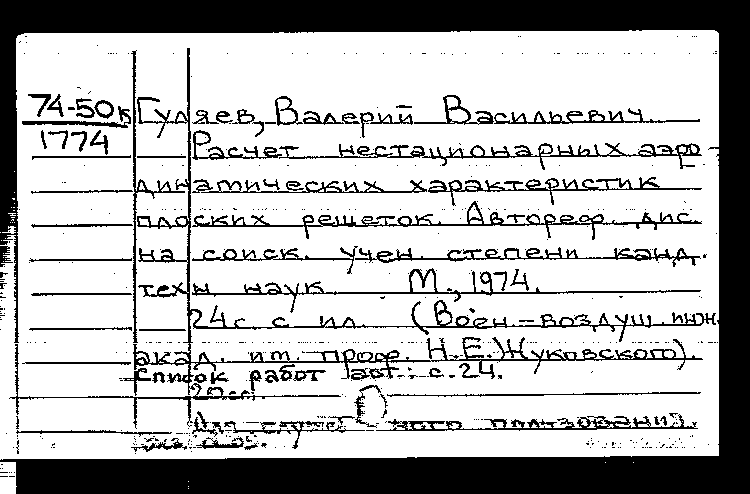 74-50к Гуляев, Валерий Васильевич.
1774
Расчет нестационарных аэро-
динамических характеристик
плоских решеток. Автореф. дис.
на соиск. учен. степени канд.
техн наук М., 1974.
24с. с ил. (Воен.-воздуш. инж.
акад. им. проф. Н.Е.Жуковского).
Список работ авт.: с.24.
Для ного пользования.